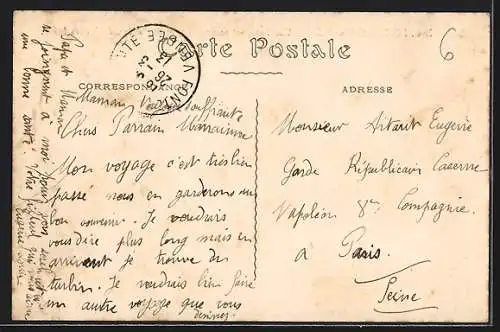 Carte Postale
6
CORRESPONDANCE
ADRESSE
Maman
Chers Parrain Marrainne
Mon voyage c'est très bien
passé nous en garderons un
bon souvenir. Je voudrais
vous dire plus long mais en
arrivant je trouve du
turbin. Je voudrais bien faire
un autre voyage que vous
Monsieur Aitarit Eugène
Garde Républicain Caserne
Napoléon 8e Compagnie
à Paris.
Seine
Papa et Maman
se joignent à moi pour vous
une bonne santé. Votre filleul qui vous